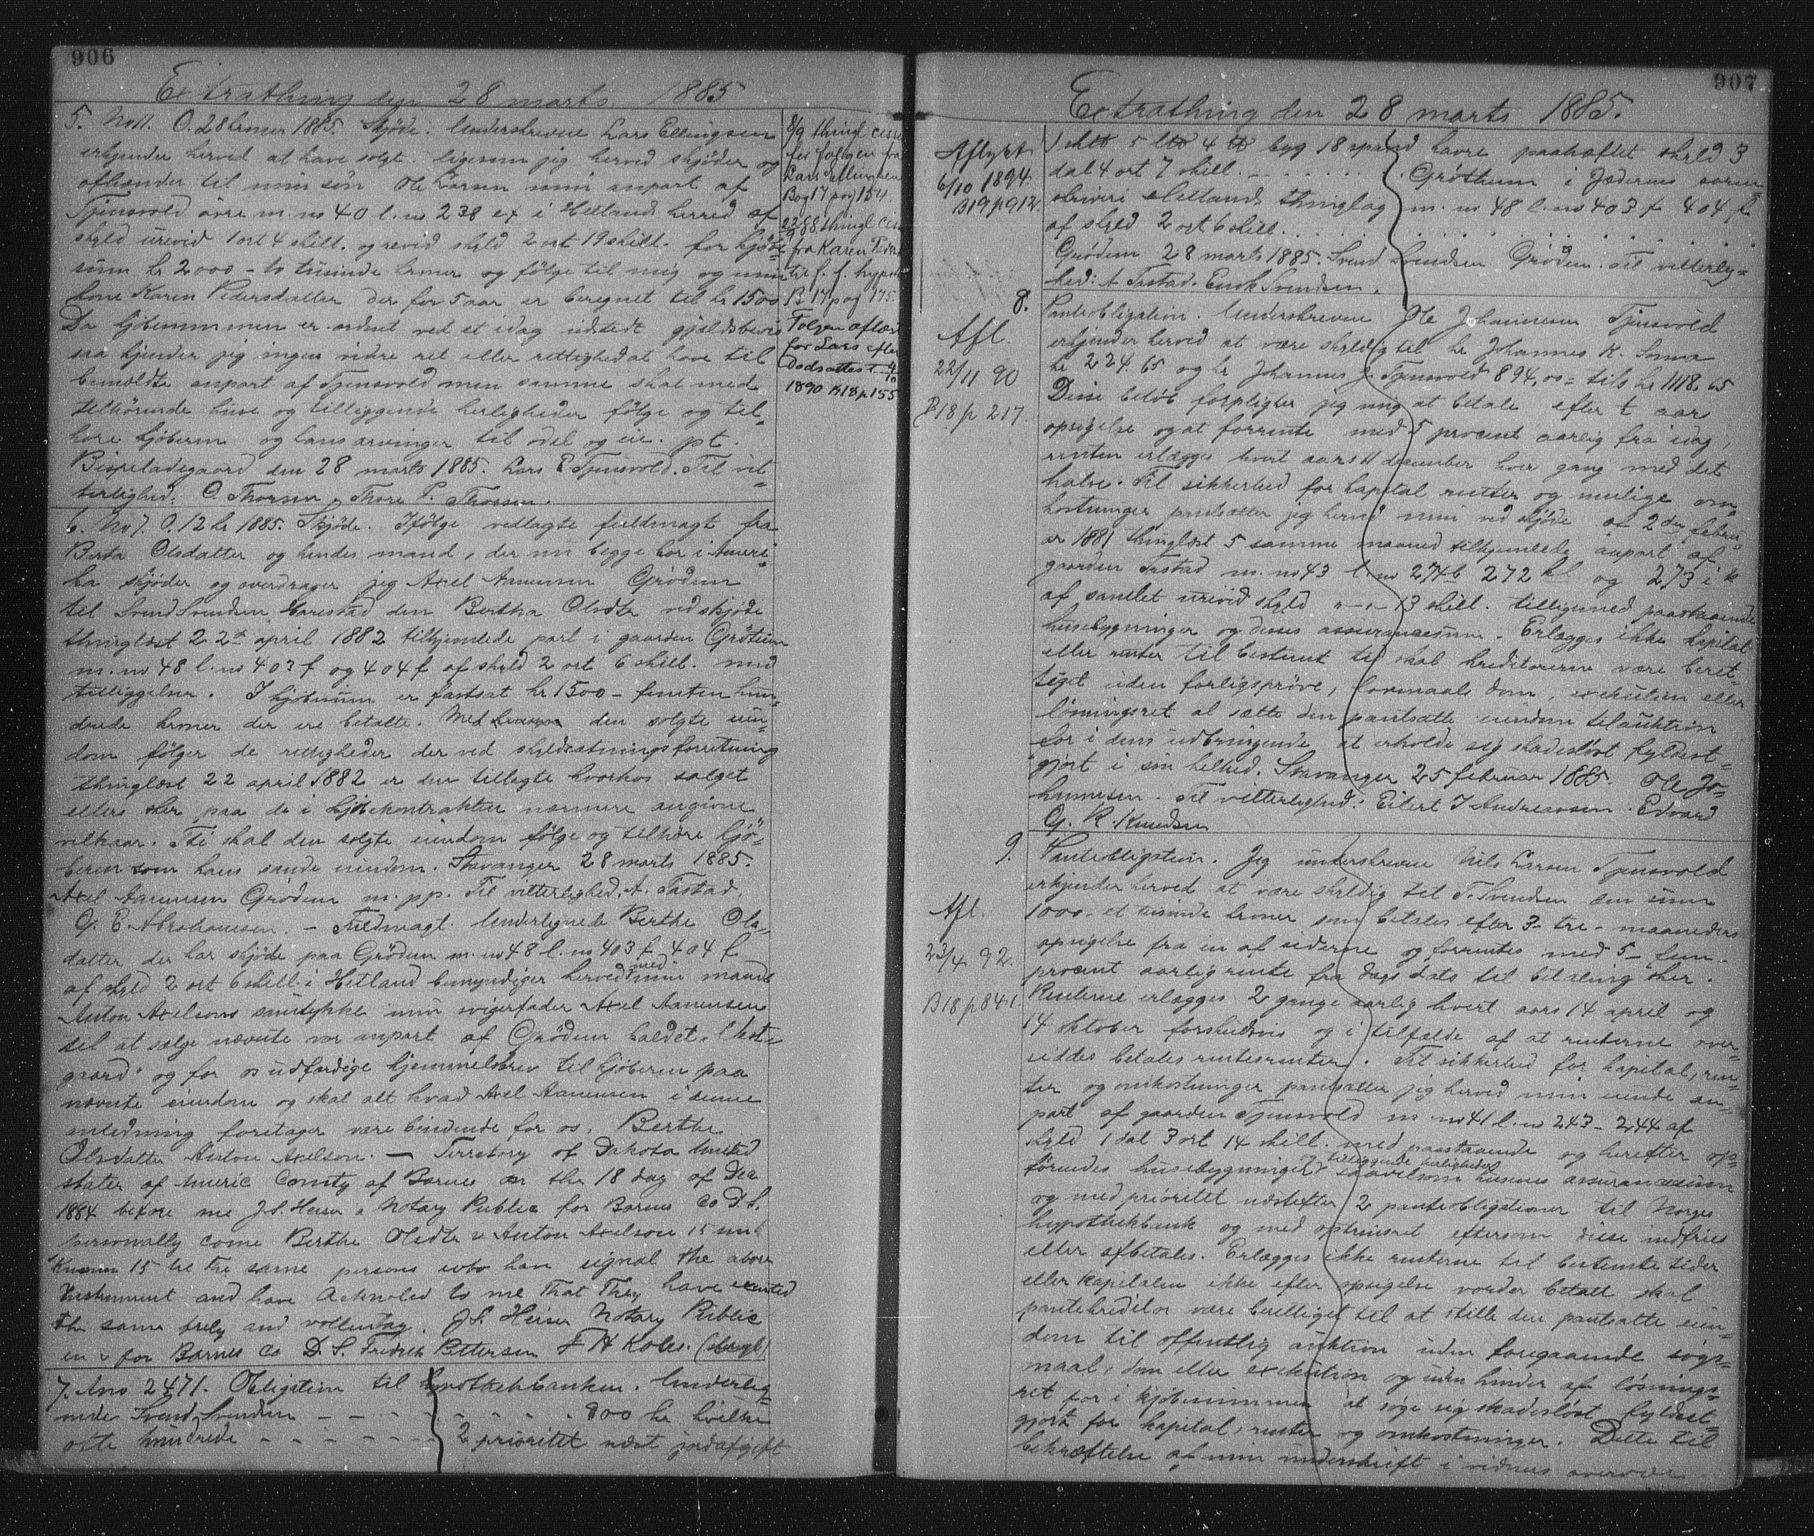 906
Extrathing den 28 marts 1885
5. No 11. O. 28 kroner 1885. Skjöde. Underskrevne Lars Ellingsen
erkjender herved at have solgt ligesom jeg herved skjöder og
afhænder til min sön Ole Larsen min anpart af
Tjensvold övre m. no 40 l. no 238 ex i Hetland herred af
skyld urevid 1 ort 4 skill. og revid skyld 2 ort 19 skill. for kjöbe
sum kr 2000 - to tusinde kroner og følge til mig og min
kone Karen Pedersdatter der for 5 aar er beregnet til kr 1500
Da kjøbesummen er ordnet ved et idag udstedt gjældsbevis
saa kjender jeg ingen vidre ret eller rettighed at have til
bemeldte anpart af Tjensvold men samme skal med
tilhörende huse og tilliggende herligheder følge og til-
høre kjøberen og hans arvinger til odel og eie. pt.
Bispeladegaard den 28 marts 1885. Lars E Tjensvold. Til vit-
terlighed: O. Thorsen. Thore P. Thorsen.
8/9 thingl cess
for folgen fra
Lars Ellingsen
Bog 17 pag 154
22/9 88 thingl cess
fra Karen Peders
tr f. f. hypoth
B 17 pag 175
Folgen aflæst
for Lars efter
Dodsattest 4/10
1890 B18 p 155
6. No 7. O. 12 kr 1885. Skjöde. Ifölge vedlagte fuldmagt fra
Berta Olsdatter og hendes mand, der nu begge bor i Ameri-
ka skjøder og overdrager jeg Axel Aanensen Grødem
til Svend Svendsen Harestad den Bertha Olsdtr ved skjøde
thinglæst 22de april 1882 tilhjemlede part i gaarden Grötem
m. no 48 l. no 403 f og 404 f af skyld 2 ort 6 skill. med
tilliggelser. I kjøbesum er fastsat kr 1500 - femten hun-
drede kroner der ere betalte. Med den solgte eien-
dom følger de rettigheder der ved skyldsætningsforretning
thinglæst 22 april 1882 er den tillagte hvorhos salget
ellers sker paa de i kjöbekontrakten nærmere angivne
vilkaar. Thi skal den solgte eiendom følge og tilhøre kjö-
beren som hans sande eiendom. Stavanger 28 marts 1885.
Axel Aanensen Grödem m. p. p. Til vitterlighed. A. Tastad
G. E. Abrahamsen. - Fuldmagt. Undertegnede Berthe Ols-
datter der har skjöde paa Grödem m. no 48 l. no 403 f. 404 f
af skyld 2 ort 6 skill. i Hetland bemyndiger herved med min mand
Anton Axelsons samtykke min svigerfader Axel Aanensen
til at sælge nævnte vor anpart af Grödem kaldet "
gaard" og for os udfærdige hjemmelsbrev til kjöberen paa
nævnte eiendom og skal alt hvad Axel Aanensen i denne
anledning foretager være bindende for os. Berthe
Olsdatter Anton Axelson. - Territory of Dakota United
states of Americ County of Barnes on the 18 day of Dec
1884 before me J. S. Heiser a Notary Public for Barnes Co D. S.
personally come Berthe Olsdtr & Anton Axelson 15 me
Known 15 be tre same persons who have signal the above
Instrument and have Acknoled to me That They have exented
the same frely and vollentag. J. S. Heiser Notary Public
en & for Barnes Co D. S. Fredrik Pettersen F H Koles. (segl)
7. Ano 2471. Obligation til Hypothekbanken. Underteg-
nede Svend Svendsen - - - - - 800 kr hvilke
otte hundrede - - - - - - 2 prioritet næst jordafgift
907
Extrathing den 28 marts 1885.
Aflyst
6/10 1894.
B19 p 912.
1 sk℔ 5 l℔ 4 ℔ byg 18 spand havre paahæftet skyld 3
dal 4 ort 7 skill. . . . . . . Gröthem i Jæderens soren-
skriveri Hetlands thinglag m. no 48 l. no 403 f 404 f
af skyld 2 ort 6 skill. . . . . . . . . . .
Grødem 28 marts 1885. Svend Svendsen Grödem. Til vitterlig-
hed: A Tastad. Enok Svendsen.
8.
Afl.
22/11 90
B18 p 217.
Panteobligation. Underskrevne Ole Johannesen Tjensvold
erkjender herved at være skyldig til hr Johannes K. Sunna
kr 224.65 og hr Johannes J. Tjensvold 894,00 = tils kr 1118.65
Disse beløb forpligter jeg mig at betale efter 1 aars
opsigelse og at forrente med 5 procent aarlig fra idag,
renten erlægges hvert aars 11 december hver gang med det
halve. Til sikkerhed for kapital renter og mulige om-
kostninger pantsætter jeg herved min ved skjøde af 2den febru-
ar 1881 thinglæst 5 samme maaned tilhjemlede anpart af
gaarden Tastad m. no 43 l. no 274 b 272 kl og 273 i k
af samlet urevid skyld " - " - 13 skill. tilligemed paastaaende
husebygninger og deres assurancesum. Erlægges ikke kapital
eller renter til bestemt tid skal kreditorerne være beret-
tiget uden forligsprøve, lovmaals dom, exekution eller
løsningsret at sætte den pantsatte eiendom til auktion
for i dens udbringende at erholde sig skadesløst fyldest-
gjort i sin helhed. Stavanger 25 februar 1885. Ole Jo-
hannesen. Til vitterlighed: Eilert J Andreassen. Edvard
G. K. Knudsen
9.
Afl.
23/4 92.
B18 p 841.
Panteobligation. Jeg underskrevne Nils Larsen Tjensvold
erkjender herved at være skyldig til T. Svendsen en sum
1000 - et tusinde kroner som betales efter 3 - tre - maaneders
opsigelse fra en af siderne og forrentes med 5 - fem -
procent aarlig rente fra dags dato til betaling sker.
Renterne erlægges 2 gange aarlig hvert aars 14 april og
14 oktober forskudsvis og i tilfælde af at renterne over-
siddes betales rentesrenter. Til sikkerhed for kapital, ren-
ter og omkostninger pantsætter jeg herved min eiende an-
part af gaarden Tjensvold m no 41 l. no 243 - 244 af
skyld 1 dal 3 ort 14 skill. med paastaaende og herefter op-
førendes husebygninger og tilliggende herligheder saavelsom husenes assurancesum
og med prioritet næstefter 2 panteobligationer til Norges
hypothekbank og med optrinsret eftersom disse indfries
eller afbetales. Erlægges ikke renterne til bestemte tider
eller kapitalen ikke efter opsigelse vorder betalt skal
pantekreditor være berettiget til at stille den pantsatte eien-
dom til offentlig auktion uden foregaaende søgs-
maal, dom eller exekution og uden hinder af løsnings-
ret for i kjøbesummen at søge sig skadesløst fyldest-
gjort for kapital, renter og omkostninger. Dette til
bekræftelse af min underskrift i vidners overvær